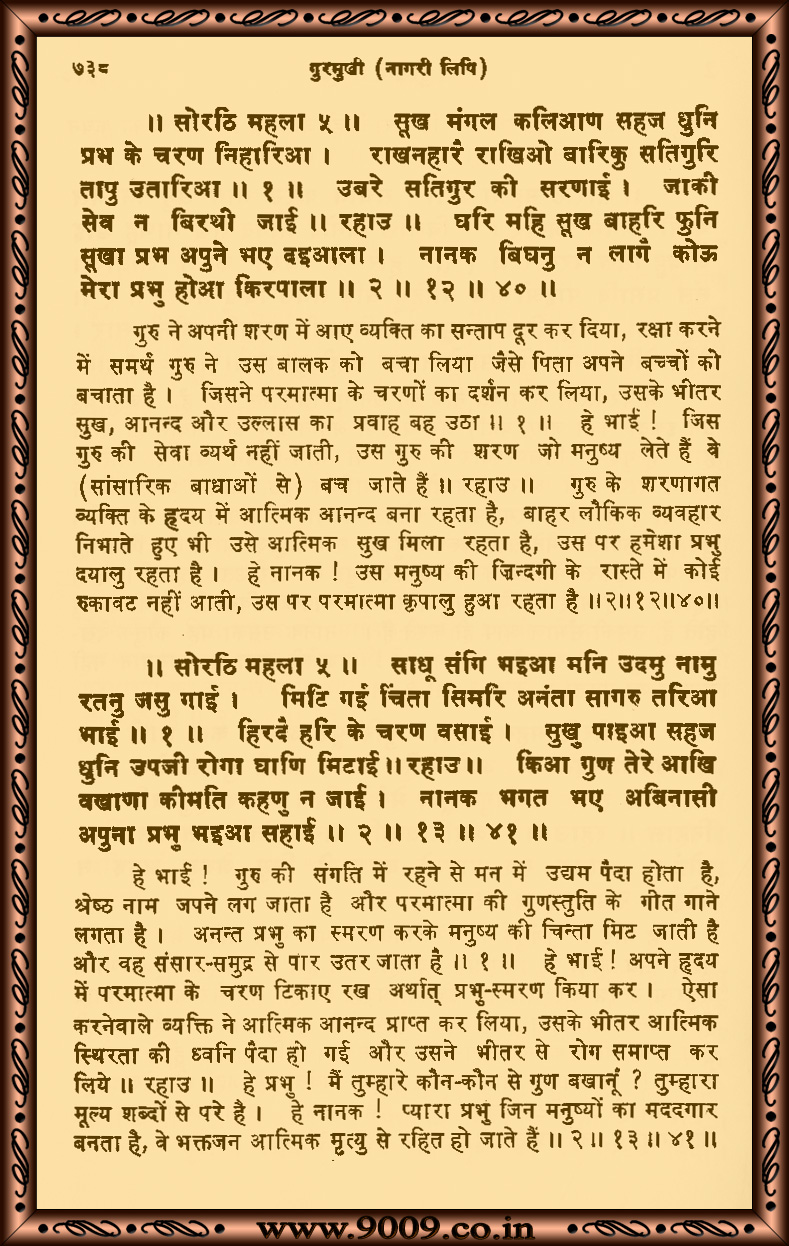 ७३८ गुरमुखी (नागरी लिपि)
॥ सोरठि महला ५ ॥ सूख मंगल कलिआण सहज धुनि
प्रभ के चरण निहारिआ । राखनहारै राखिओ बारिकु सतिगुरि
तापु उतारिआ ॥ १ ॥ उबरे सतिगुर की सरणाई । जाकी
सेव न बिरथी जाई ॥ रहाउ ॥ घरि महि सूख बाहरि फुनि
सूखा प्रभ अपुने भए दइआला । नानक बिघनु न लागै कोऊ
मेरा प्रभु होआ किरपाला ॥ २ ॥ १२ ॥ ४० ॥
गुरु ने अपनी शरण में आए व्यक्ति का सन्ताप दूर कर दिया, रक्षा करने
में समर्थ गुरु ने उस बालक को बचा लिया जैसे पिता अपने बच्चों को
बचाता है । जिसने परमात्मा के चरणों का दर्शन कर लिया, उसके भीतर
सुख, आनन्द और उल्लास का प्रवाह बह उठा ॥ १ ॥ हे भाई ! जिस
गुरु की सेवा व्यर्थ नहीं जाती, उस गुरु की शरण जो मनुष्य लेते हैं वे
(सांसारिक बाधाओं से) बच जाते हैं ॥ रहाउ ॥ गुरु के शरणागत
व्यक्ति के हृदय में आत्मिक आनन्द बना रहता है, बाहर लौकिक व्यवहार
निभाते हुए भी उसे आत्मिक सुख मिला रहता है, उस पर हमेशा प्रभु
दयालु रहता है । हे नानक ! उस मनुष्य की ज़िन्दगी के रास्ते में कोई
रुकावट नहीं आती, उस पर परमात्मा कृपालु हुआ रहता है ॥२॥१२॥४०॥
॥ सोरठि महला ५ ॥ साधू संगि भइआ मनि उदमु नामु
रतनु जसु गाई । मिटि गई चिंता सिमरि अनंता सागरु तरिआ
भाई ॥ १ ॥ हिरदै हरि के चरण वसाई । सुखु पाइआ सहज
धुनि उपजी रोगा घाणि मिटाई ॥ रहाउ ॥ किआ गुण तेरे आखि
वखाणा कीमति कहणु न जाई । नानक भगत भए अबिनासी
अपुना प्रभु भइआ सहाई ॥ २ ॥ १३ ॥ ४१ ॥
हे भाई ! गुरु की संगति में रहने से मन में उद्यम पैदा होता है,
श्रेष्ठ नाम जपने लग जाता है और परमात्मा की गुणस्तुति के गीत गाने
लगता है । अनन्त प्रभु का स्मरण करके मनुष्य की चिन्ता मिट जाती है
और वह संसार-समुद्र से पार उतर जाता है ॥ १ ॥ हे भाई ! अपने हृदय
में परमात्मा के चरण टिकाए रख अर्थात् प्रभु-स्मरण किया कर । ऐसा
करनेवाले व्यक्ति ने आत्मिक आनन्द प्राप्त कर लिया, उसके भीतर आत्मिक
स्थिरता की ध्वनि पैदा हो गई और उसने भीतर से रोग समाप्त कर
लिये ॥ रहाउ ॥ हे प्रभु ! मैं तुम्हारे कौन-कौन से गुण बखानूं ? तुम्हारा
मूल्य शब्दों से परे है । हे नानक ! प्यारा प्रभु जिन मनुष्यों का मददगार
बनता है, वे भक्तजन आत्मिक मृत्यु से रहित हो जाते हैं ॥ २ ॥ १३ ॥ ४१ ॥
www.9009.co.in